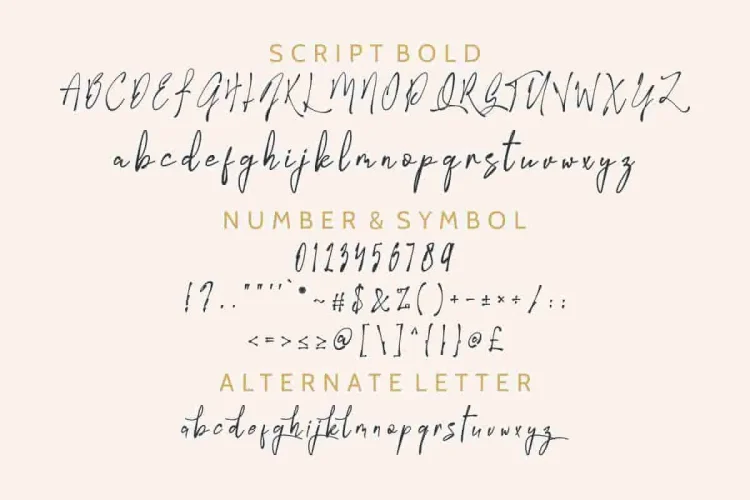 SCRIPT BOLD
ABCDEFGHIJKLMNOPQRSTUVWXYZ
abcdefghijklmnopqrstuvwxyz
NUMBER & SYMBOL
0123456789
!?..""''`*~#$&%()+-±×÷/::
<=>≤≥@[\]^{|}@£
ALTERNATE LETTER
abcdefghijklmnopqrstuvwxyz